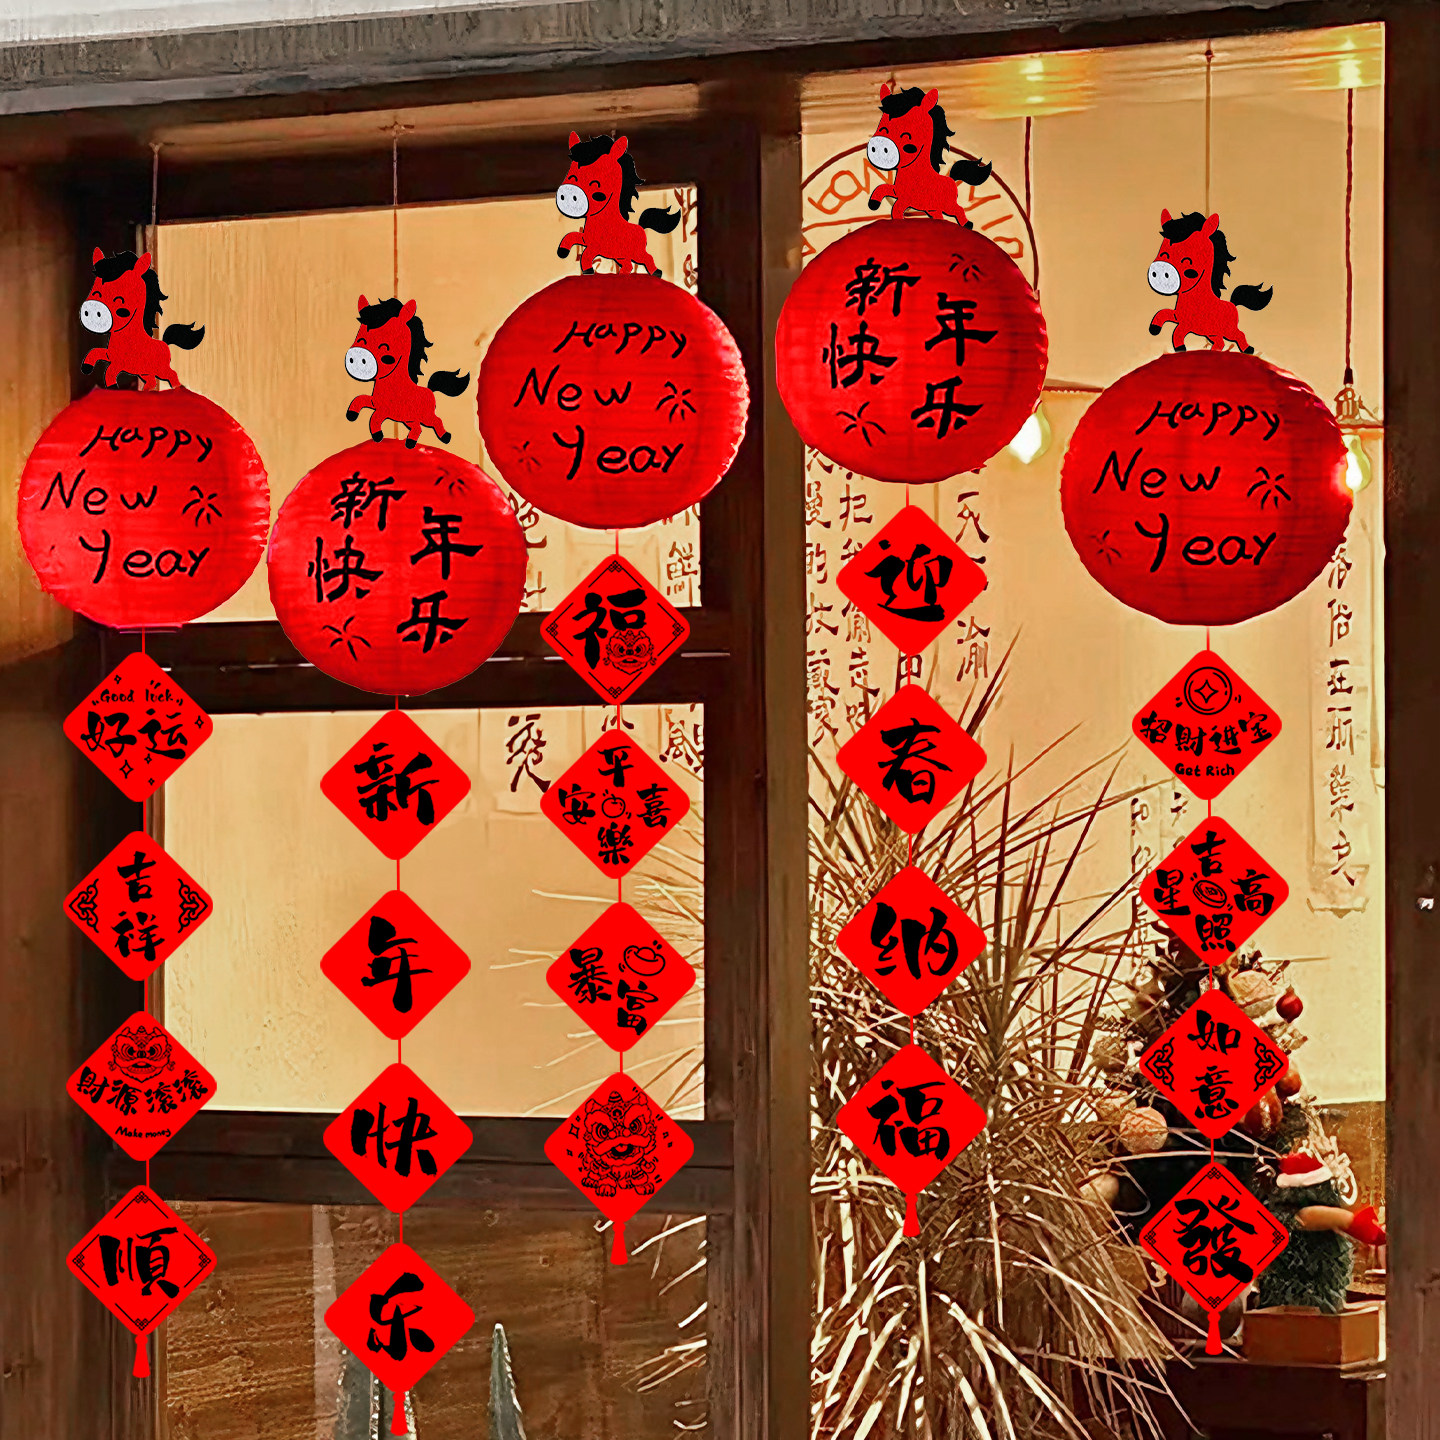 Happy
New
Year
Good luck
好运
吉
祥
財源滾滾
Make money
順
新年
快乐
新
年
快
乐
Happy
New
Year
福
平
安喜
樂
暴富
新年
快乐
迎
春
纳
福
Happy
New
Year
招財進宝
Get Rich
吉
星高
照
如
意
發